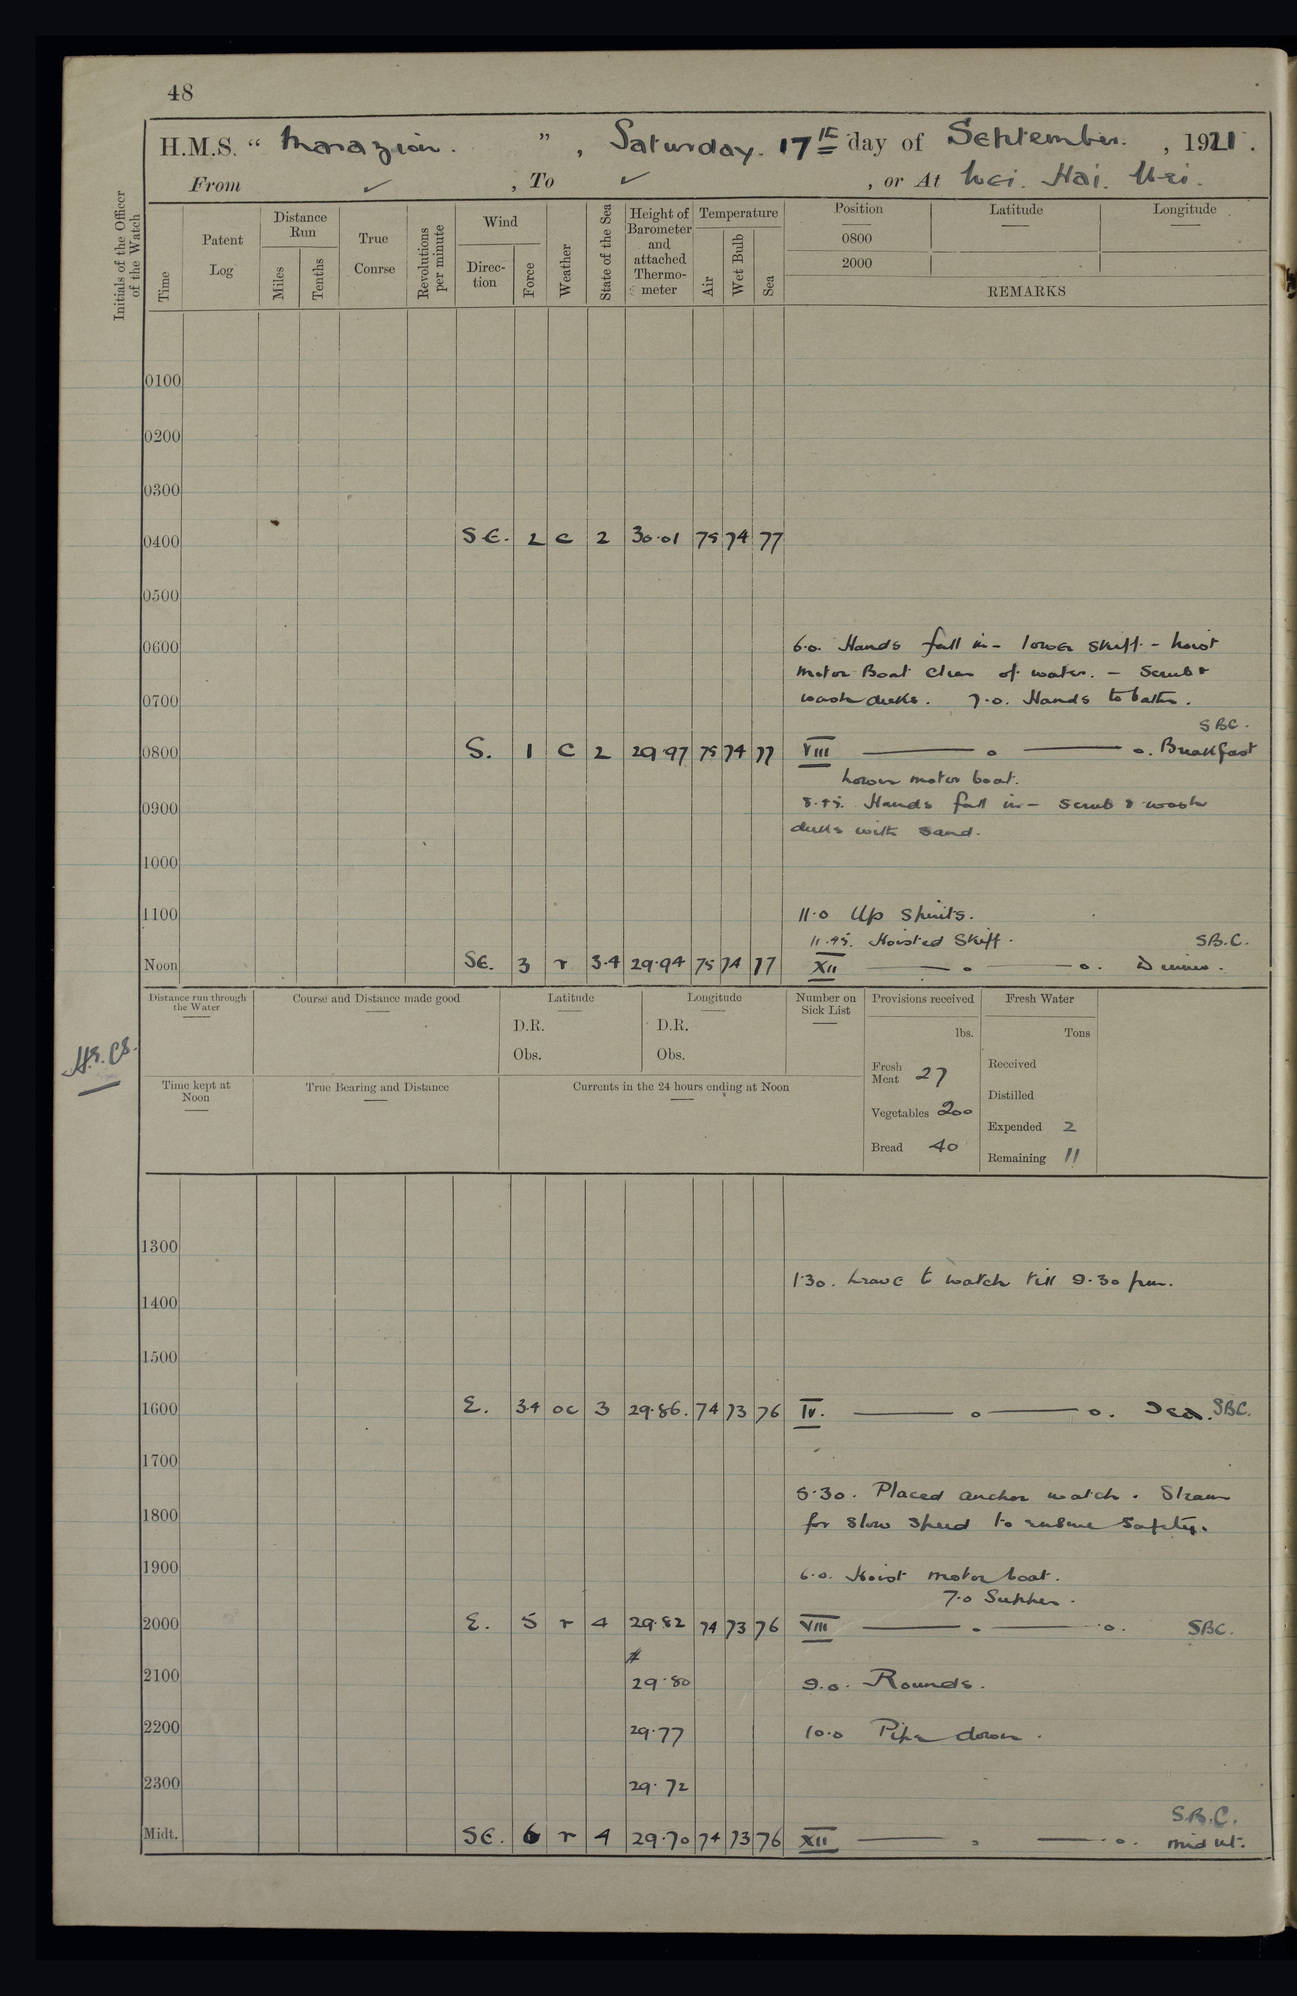 48
H.M.S. “ Marazion. ” , Saturday. 17th day of September. , 1921.
From ✓ , To ✓ , or At Wei. Hai. Wei.
Initials of the Officer of the Watch
Time
Patent Log
Distance Run
Miles
Tenths
True Course
Revolutions per minute
Wind
Direc- tion
Force
Weather
State of the Sea
Height of Barometer and attached Thermo- meter
Temperature
Air
Wet Bulb
Sea
Position
Latitude
Longitude
0800
2000
REMARKS
0100
0200
0300
0400 SE. 2 c 2 30.01 75 74 77
0500
0600 6.0. Hands fall in - lower skiff - hoist
motor Boat clear of water. - Scrub &
0700 wash decks. 7.0. Hands to bathe.
SBC.
0800 S. 1 c 2 29.97 75 74 77 VIII —— o —— o. Breakfast
Lower motor boat.
0900 8.45. Hands fall in - scrub & wash
decks with sand.
1000
1100 11.0 Up Spirits.
11.45. Hoisted Skiff. SB.C.
Noon SE. 3 r 3.4 29.94 75 74 77 XII —— o —— o. Dinner.
Distance run through the Water
Course and Distance made good
Latitude
D.R.
Obs.
Longitude
D.R.
Obs.
Number on Sick List
Provisions received
lbs.
Fresh Meat 27
Vegetables 200
Bread 40
Fresh Water
Tons
Received
Distilled
Expended 2
Remaining 11
Time kept at Noon
True Bearing and Distance
Currents in the 24 hours ending at Noon
1300
1.30. Leave to watch till 9.30 pm.
1400
1500
1600 E. 3.4 oc 3 29.86. 74 73 76 IV. —— o —— o. Tea. SBC.
1700
5.30. Placed anchor watch. Steam
1800 for slow speed to ensure safety.
1900 6.0. Hoist motor boat.
7.0 Supper.
2000 E. 5 r 4 29.82 74 73 76 VIII —— o —— o. SBC.
2100 29.80 9.0. Rounds.
2200 29.77 10.0 Pipe down.
2300 29.72
S.B.C.
Midt. SE. 6 r 4 29.70 74 73 76 XII —— o —— o. mid nt.